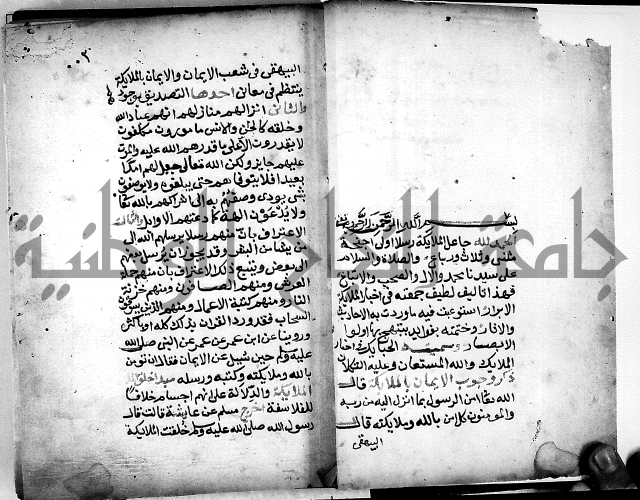 بسم الله الرحمن الرحيم
الحمد لله جاعل الملايكة رسلا اولى اجنحة
مثنى وثلاث ورباع والصلاة والسلام
على سيدنا محمد والال والصحب والاتباع
فهذا تاليف لطيف جمعته فى اخبار الملايكة
الابرار استوعبت فيه ما وردت به الاحاديث
والاثار وختمته بفوايد يبتهج بها اولوا
الابصار وسميته الحبايك فى اخبار
الملايك والله المستعان وعليه التكلان
ذكر وجوب الايمان بالملايكة قال
الله تعالى امن الرسول بما انزل اليه من ربه
والمومنون كل امن بالله وملايكته قال
البيهقى
٠٠٢
البيهقى فى شعب الايمان والايمان بالملايكة
ينتظم فى معانى احدها التصديق بوجودهم
والثانى انزالهم منازلهم انهم عباد الله
وخلقه كالجن والانس مامورون مكلفون
لا يقدرون الا على ما قدرهم الله عليه والموت
عليهم جايز ولكن الله تعالى جعل لهم امدا
بعيدا فلا يتوفاهم حتى يبلغوه ولا يوصفون
بشى يودى وصفهم به الى اشراكهم بالله تعالى
ولا يدعون الهة كما دعتهم الاوايل الثالث
الاعتراف بان منهم رسلا يرسلهم الله الى
من يشا من البشر وقد يجوز ان يرسل بعضهم
الى بعض ويتبع ذلك الاعتراف بان منهم حملة
العرش ومنهم الصافون ومنهم خزنة
النار ومنهم كتبة الاعمال ومنهم الذين يسوقون
السحاب فقد ورد القران بذلك كله او باكثره
وروينا عن ابن عمر عن عمر عن النبى صلى الله
عليه وسلم حين سيل عن الايمان فقال ان تومن
بالله وملايكته وكتبه ورسله مبدا خلق
الملايكة والدلالة على انهم اجسام خلافا
للفلاسفة اخرج مسلم عن عايشة قالت قال
رسول الله صلى الله عليه وسلم خلقت الملايكة
جامعة الرياض الوطنية